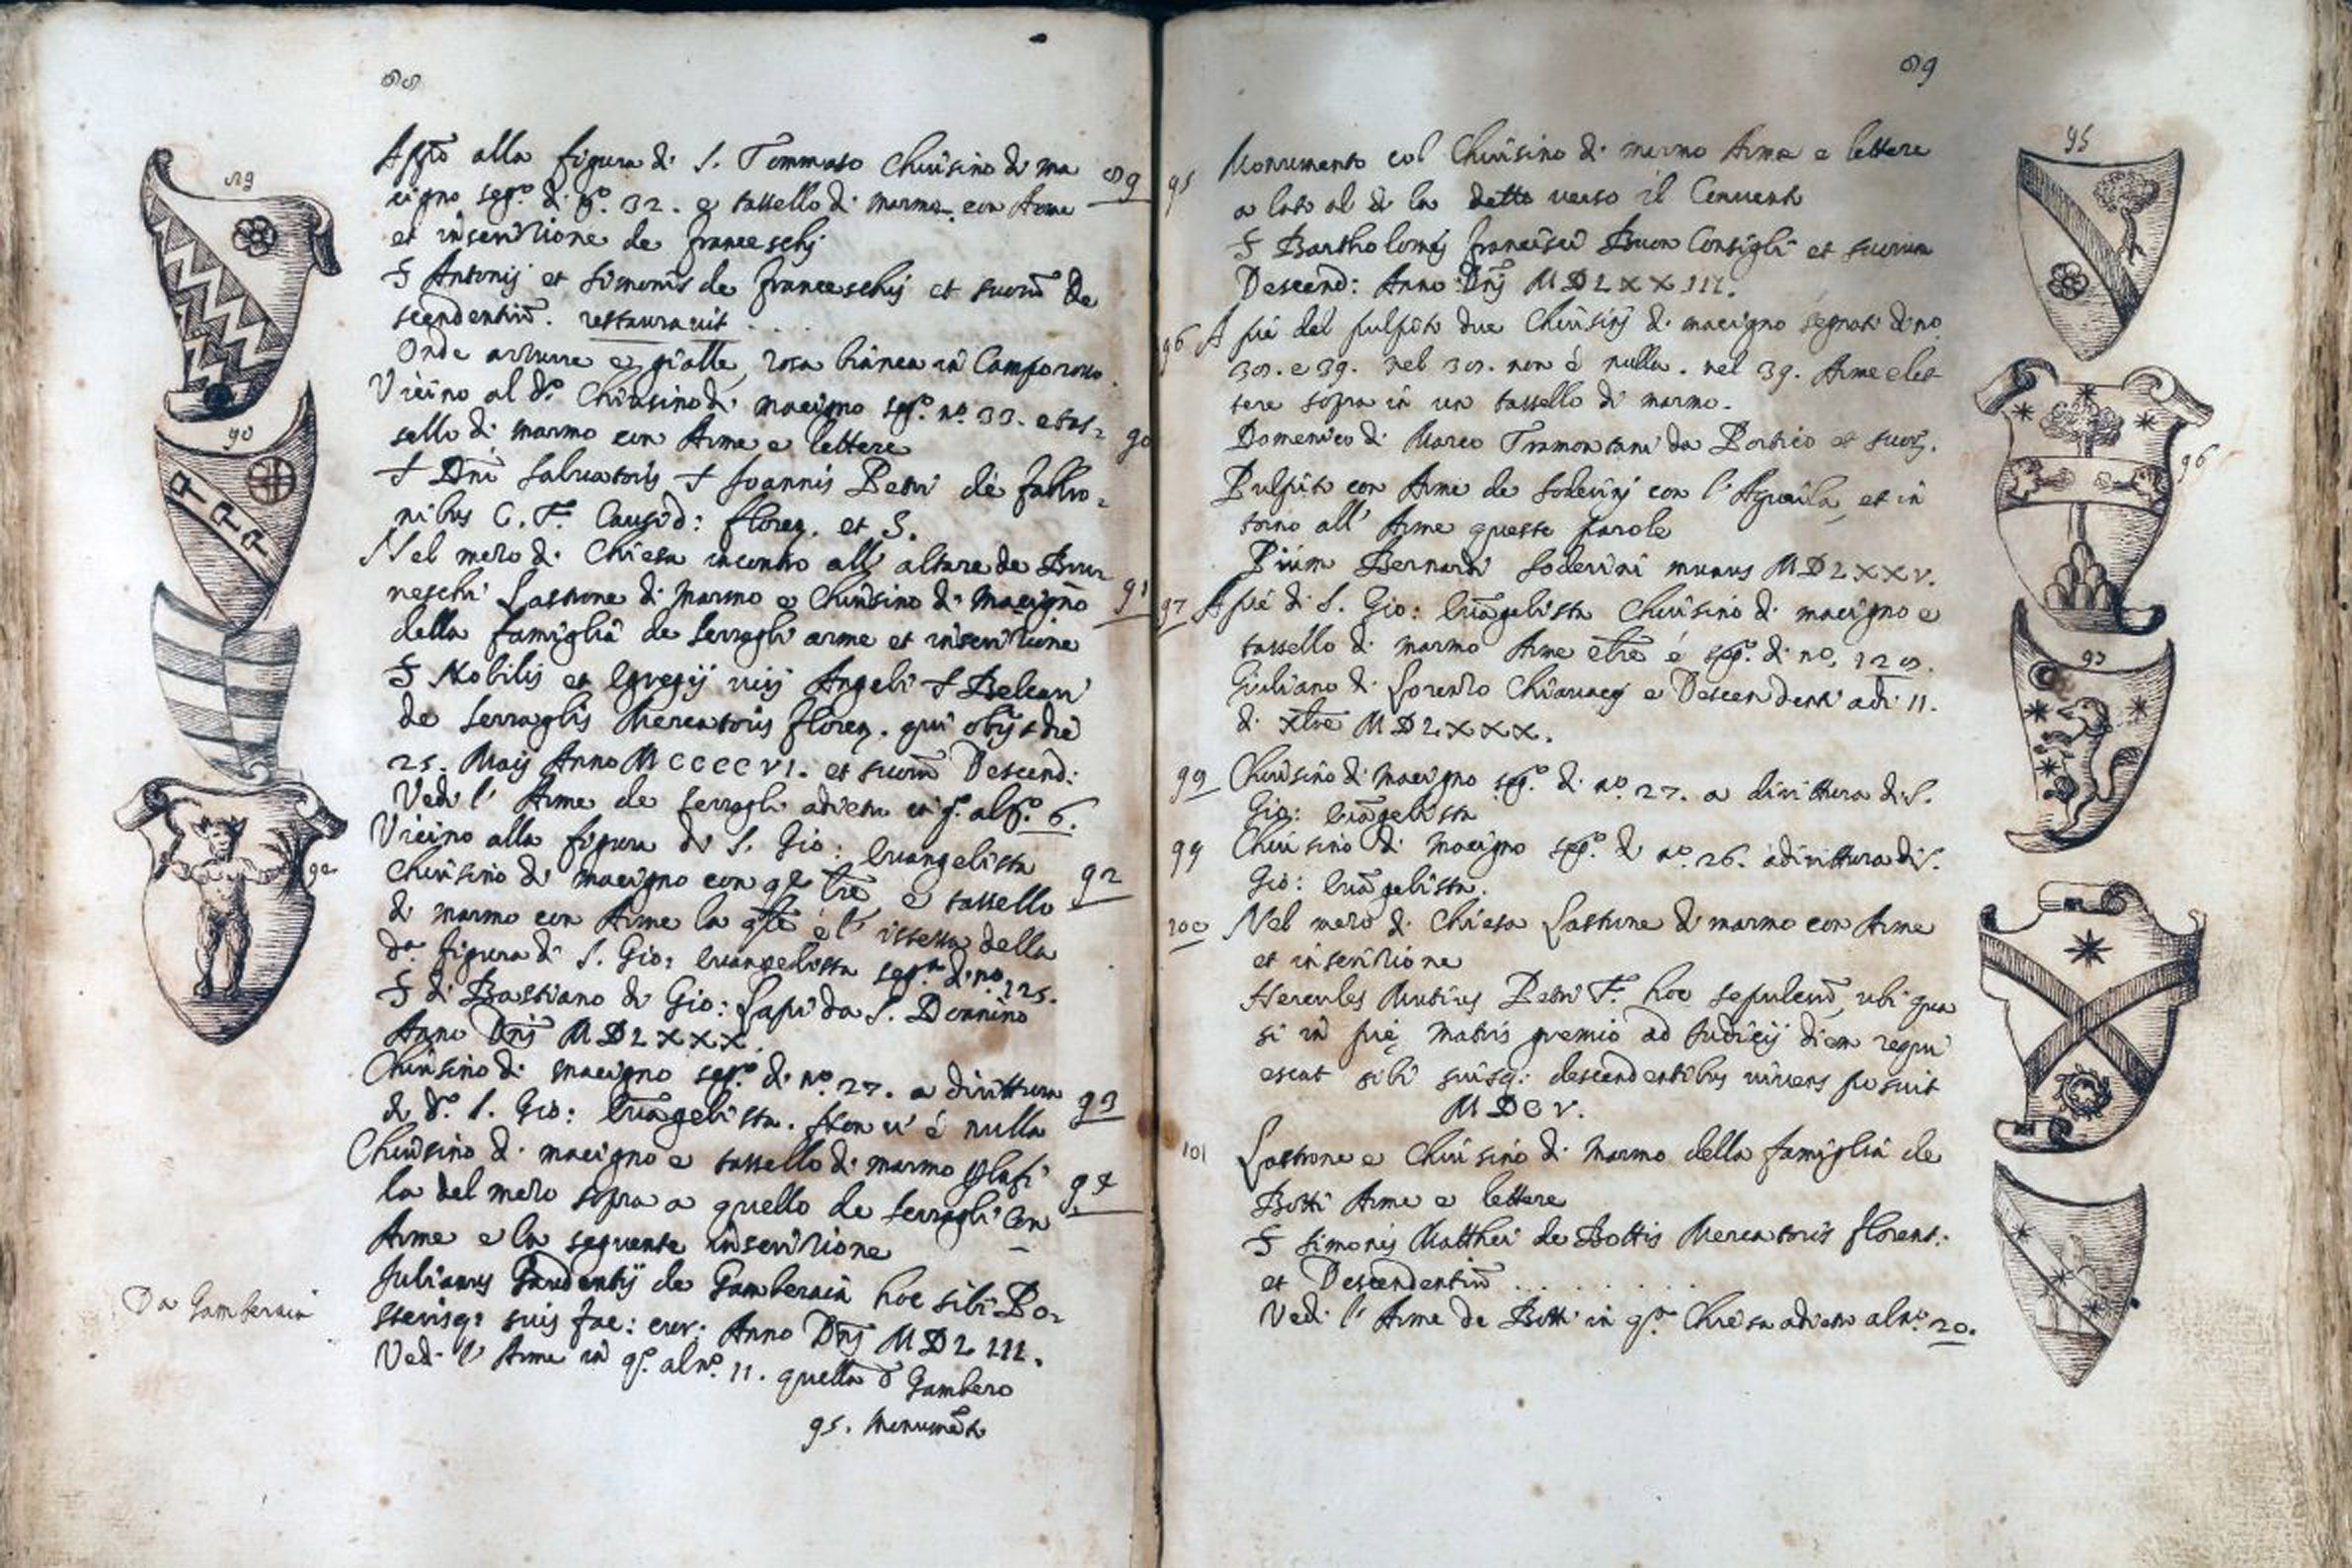 88
89
Appiè alla figura di S. Tommaso Chiusino di ma
89
cigno seg.º di nº. 32. e tassello di marmo con Arme
et inscrizione de franceschj
S Antonij et Simonis de franceschis et suorū De
scendentiū. restauravit . .
Onde azzurre e gialle, rosa bianca in Campo rosso.
Vicino al dº. Chiusino di macigno seg.º nº. 33. e tas=
90
sello di marmo con Arme e lettere
90
† Dnī Salvatoris † Joannis Petri de fabbro=
nibus C. F. Causid: floren. et S.
Nel mezo di Chiesa incontro all' altare de Bru=
neschi Lastrone di Marmo e Chiusino di Macigno
91
della famiglia de Serragli arme et inscrizione
S Nobilis et Egregij viri Angeli † Belcari
de Serraglis Mercatoris floren. qui obijt die
25. Maij Anno MCCCCVI. et suorū Descend:
Vedi l' Arme de Serragli adietro in q.ª al nº. 6.
Vicino alla figura di S. Gio: Evangelista
92
Chiusino di macigno con qste tre, e tassello
92
di marmo con Arme la qle è l' istessa della
dª. figura di S. Gio: Evangelista segª. di nº 125.
S di Bastiano di Gio: Lapi da S. Donnino
Anno Dnj MDLXXX.
Chiusino di macigno seg.º di nº. 27. a dirittura
93
di dº. S. Gio: Evāgelista. Non vi è nulla
Chiusino di macigno e tassello di marmo
94
la del mezo sopra a quello de Serragli Con
Arme e la seguente inscrizione
Julianus Gaudentij de Gamberaia hoc sibi Po=
Da Gamberaia
sterisq: suis fac: cur: Anno Dnj MDLIII.
Vedi l' Arme in q.ª al nº. 11. quella d Gambero
95. Monumēto
89
95
95
Monumento col Chiusino di marmo Arme e lettere
a lato al di la detto verso il Convento
S Bartholomej francisci Buon Consigli et suorum
Descend: Anno Dnj MDLXXIII.
96
A piè del pulpito due Chiusinj di macigno segnati di nº
38. e 39. nel 38. non è nulla. nel 39. Arme e let=
tere sopra in un tassello di marmo.
Domenico di Marco Tramontani da Portico et suor.
96
Pulpito con Arme de Soderinj con l' Aquila, et in
torno all' Arme queste parole
Pium Bernardi Soderini munus MDLXXV.
97
A piè di S. Gio: Evāgelista Chiusino di macigno e
97
tassello di marmo Arme e tre è seg.º di nº. 128.
Giuliano di Lorenzo Chiavacej e Descendenti adi 11.
di xbre MDLXXX.
98
Chiusino di macigno seg.º di nº. 27. a dirittura di S.
Gio: Evāgelista
99
Chiusino di macigno seg.º di nº. 26. a dirittura di S.
Gio: Evāgelista.
100
Nel mezo di Chiesa Lastrone di marmo con Arme
et inscrizione
Hercules Mutius Petri F. hoc sepulcrū, ubi qua
si in pię matris gremio ad Iudicij diem requi
escat sibi suisq: descendentibus vivens posuit
MDCV.
101
Lastrone e Chiusino di marmo della famiglia de
Botti Arme e lettere
S Simonis Matthei de Bottis Mercatoris florent:
et Descendentiū . . . . . . .
Vedi l' Arme de Botti in q.ª Chiesa adietro al nº. 20.